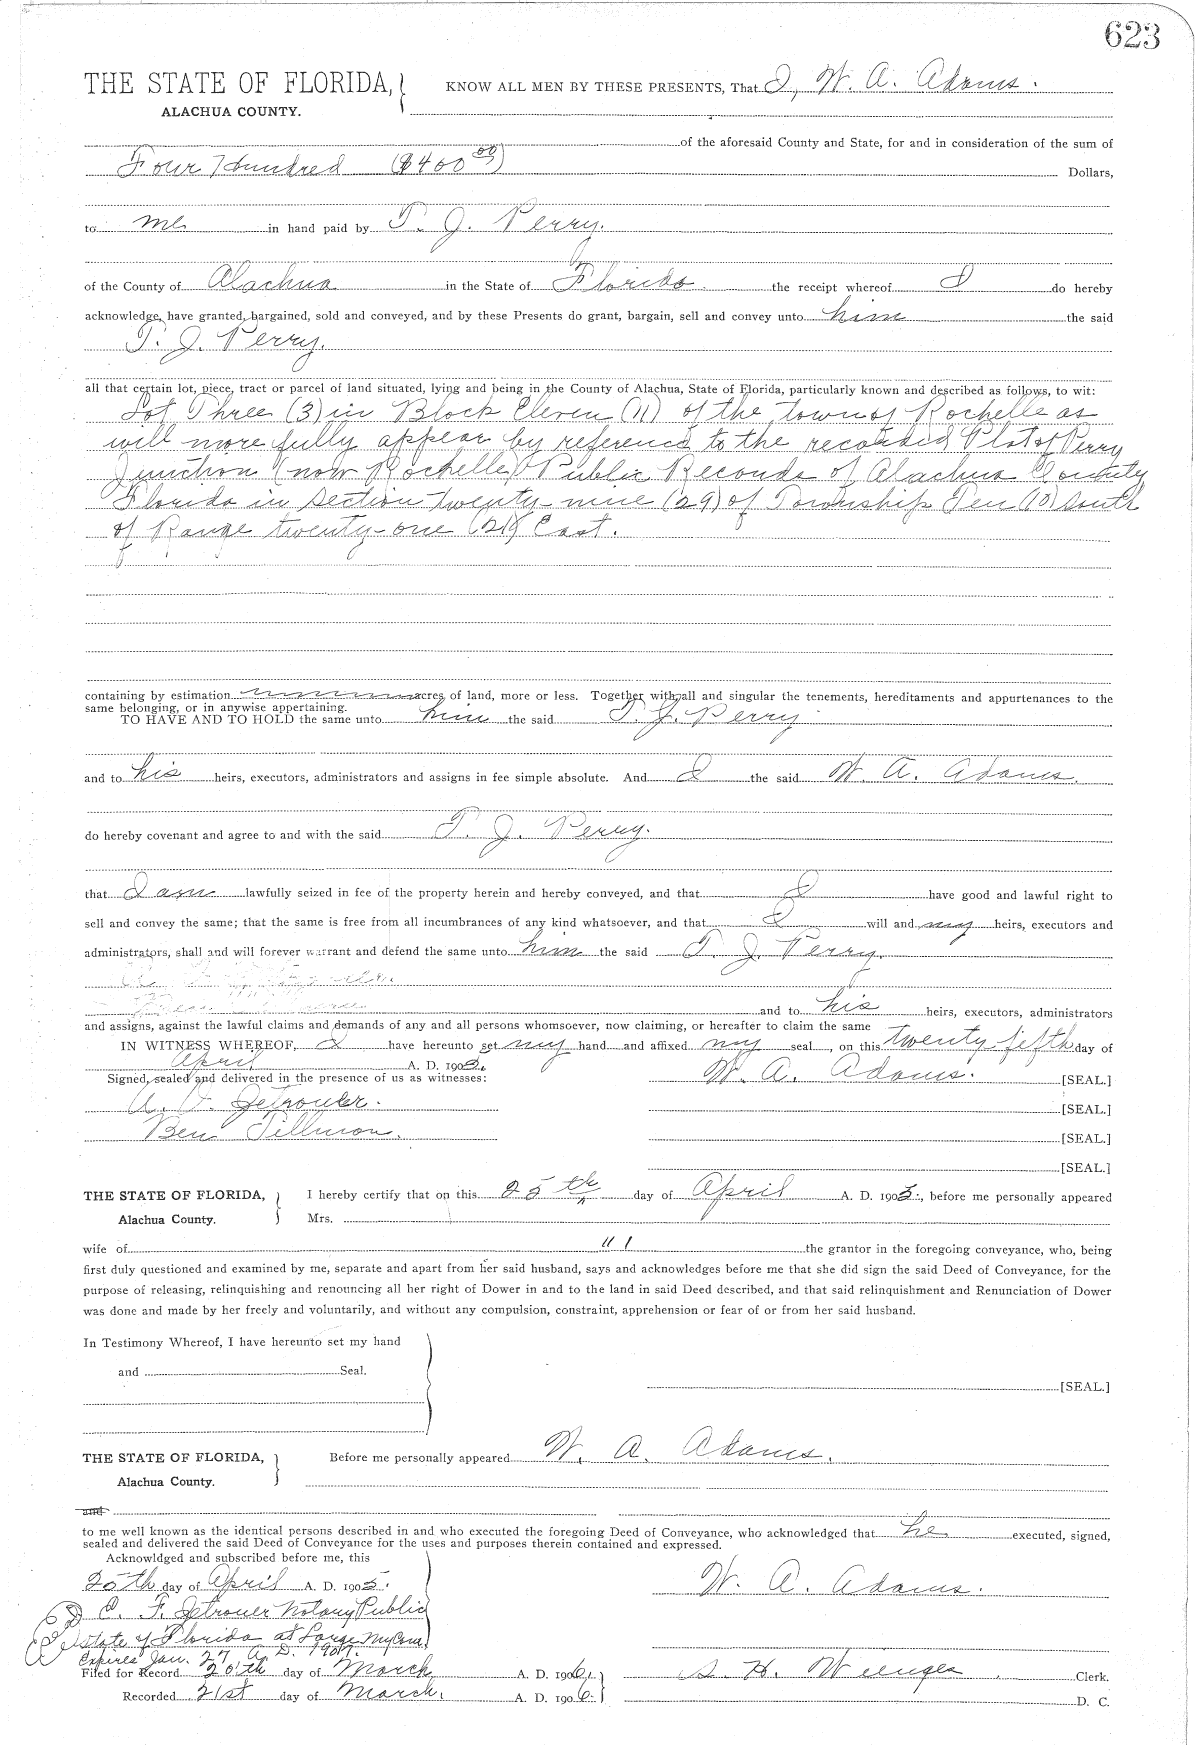 623
THE STATE OF FLORIDA, KNOW ALL MEN BY THESE PRESENTS, That I, W. A. Adams.
ALACHUA COUNTY.
of the aforesaid County and State, for and in consideration of the sum of
Four Hundred ($400.00) Dollars,
to me in hand paid by T. J. Perry.
of the County of Alachua in the State of Florida. the receipt whereof I do hereby
acknowledge, have granted, bargained, sold and conveyed, and by these Presents do grant, bargain, sell and convey unto him the said
T. J. Perry.
all that certain lot, piece, tract or parcel of land situated, lying and being in the County of Alachua, State of Florida, particularly known and described as follows, to wit:
Lot Three (3) in Block Eleven (11) of the town of Rochelle as
will more fully appear by reference to the recorded Plat of Perry
Junction (now Rochelle) Public Records of Alachua County
Florida in section twenty-nine (29) of Township Ten (10) south
of Range twenty-one (21) East.
containing by estimation acres of land, more or less. Together with all and singular the tenements, hereditaments and appurtenances to the
same belonging, or in anywise appertaining.
TO HAVE AND TO HOLD the same unto him the said T. J. Perry
and to his heirs, executors, administrators and assigns in fee simple absolute. And I the said W. A. Adams.
do hereby covenant and agree to and with the said T. J. Perry.
that I am lawfully seized in fee of the property herein and hereby conveyed, and that I have good and lawful right to
sell and convey the same; that the same is free from all incumbrances of any kind whatsoever, and that I will and my heirs, executors and
administrators, shall and will forever warrant and defend the same unto him the said T. J. Perry.
and to his heirs, executors, administrators
and assigns, against the lawful claims and demands of any and all persons whomsoever, now claiming, or hereafter to claim the same
IN WITNESS WHEREOF, I have hereunto set my hand and affixed my seal, on this twenty fifth day of
April A. D. 1905.
Signed, sealed and delivered in the presence of us as witnesses: W. A. Adams. [SEAL.]
[SEAL.]
Ben Tillman. [SEAL.]
[SEAL.]
THE STATE OF FLORIDA, I hereby certify that on this 25th day of April A. D. 1905, before me personally appeared
Alachua County. Mrs.
wife of " " the grantor in the foregoing conveyance, who, being
first duly questioned and examined by me, separate and apart from her said husband, says and acknowledges before me that she did sign the said Deed of Conveyance, for the
purpose of releasing, relinquishing and renouncing all her right of Dower in and to the land in said Deed described, and that said relinquishment and Renunciation of Dower
was done and made by her freely and voluntarily, and without any compulsion, constraint, apprehension or fear of or from her said husband.
In Testimony Whereof, I have hereunto set my hand
and Seal.
[SEAL.]
THE STATE OF FLORIDA, Before me personally appeared W. A. Adams.
Alachua County.
and
to me well known as the identical persons described in and who executed the foregoing Deed of Conveyance, who acknowledged that he executed, signed,
sealed and delivered the said Deed of Conveyance for the uses and purposes therein contained and expressed.
Acknowldged and subscribed before me, this
25th day of April A. D. 1905. W. A. Adams.
C. F. Zetrouer Notary Public
State of Florida at Large My Com.
Expires Jan. 27, A. D. 1907.
Filed for Record 20th day of March A. D. 1906. S. H. Wienges Clerk.
Recorded 21st day of March. A. D. 1906. D. C.